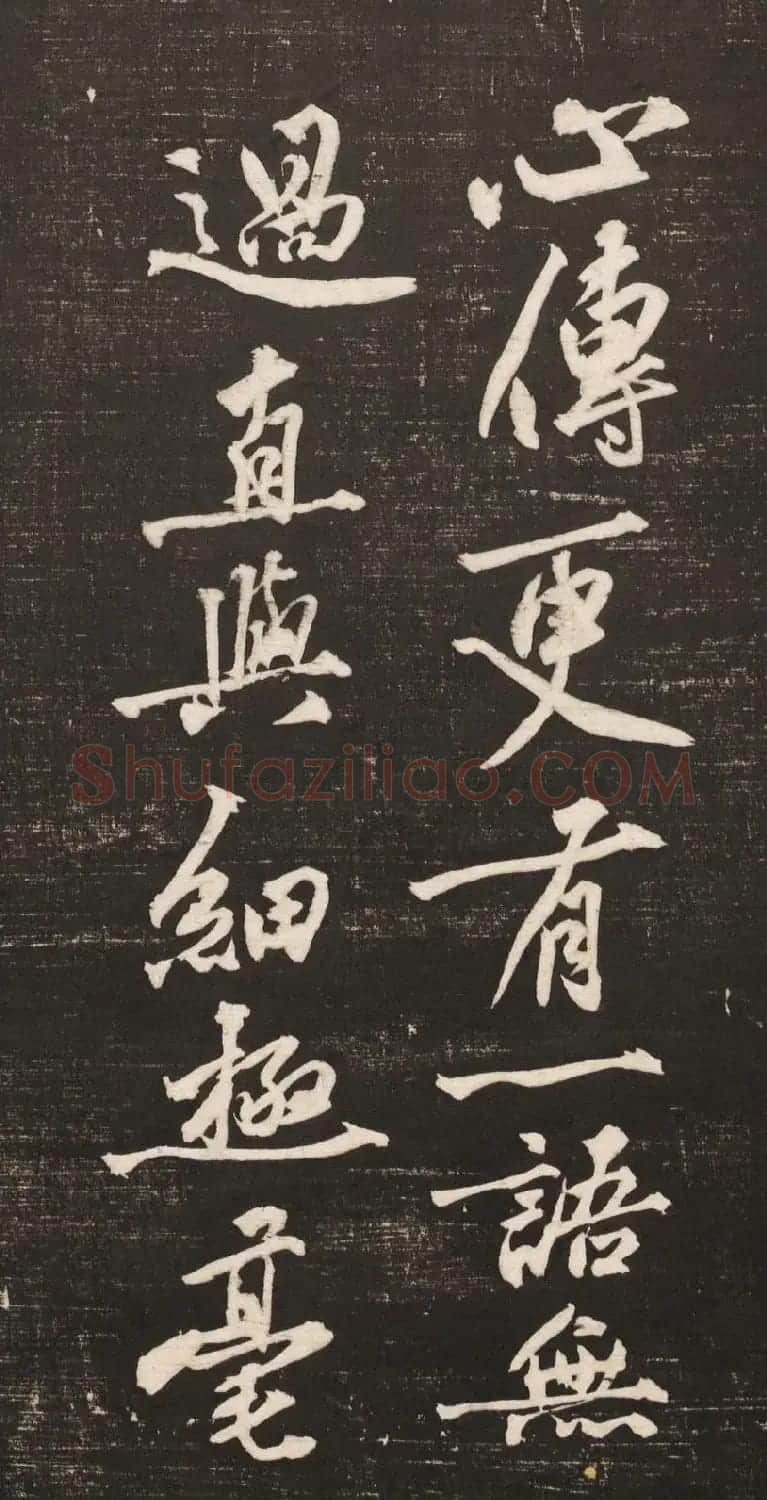 心傳更有一語無
過直與細極毫
Shufaziliao.COM